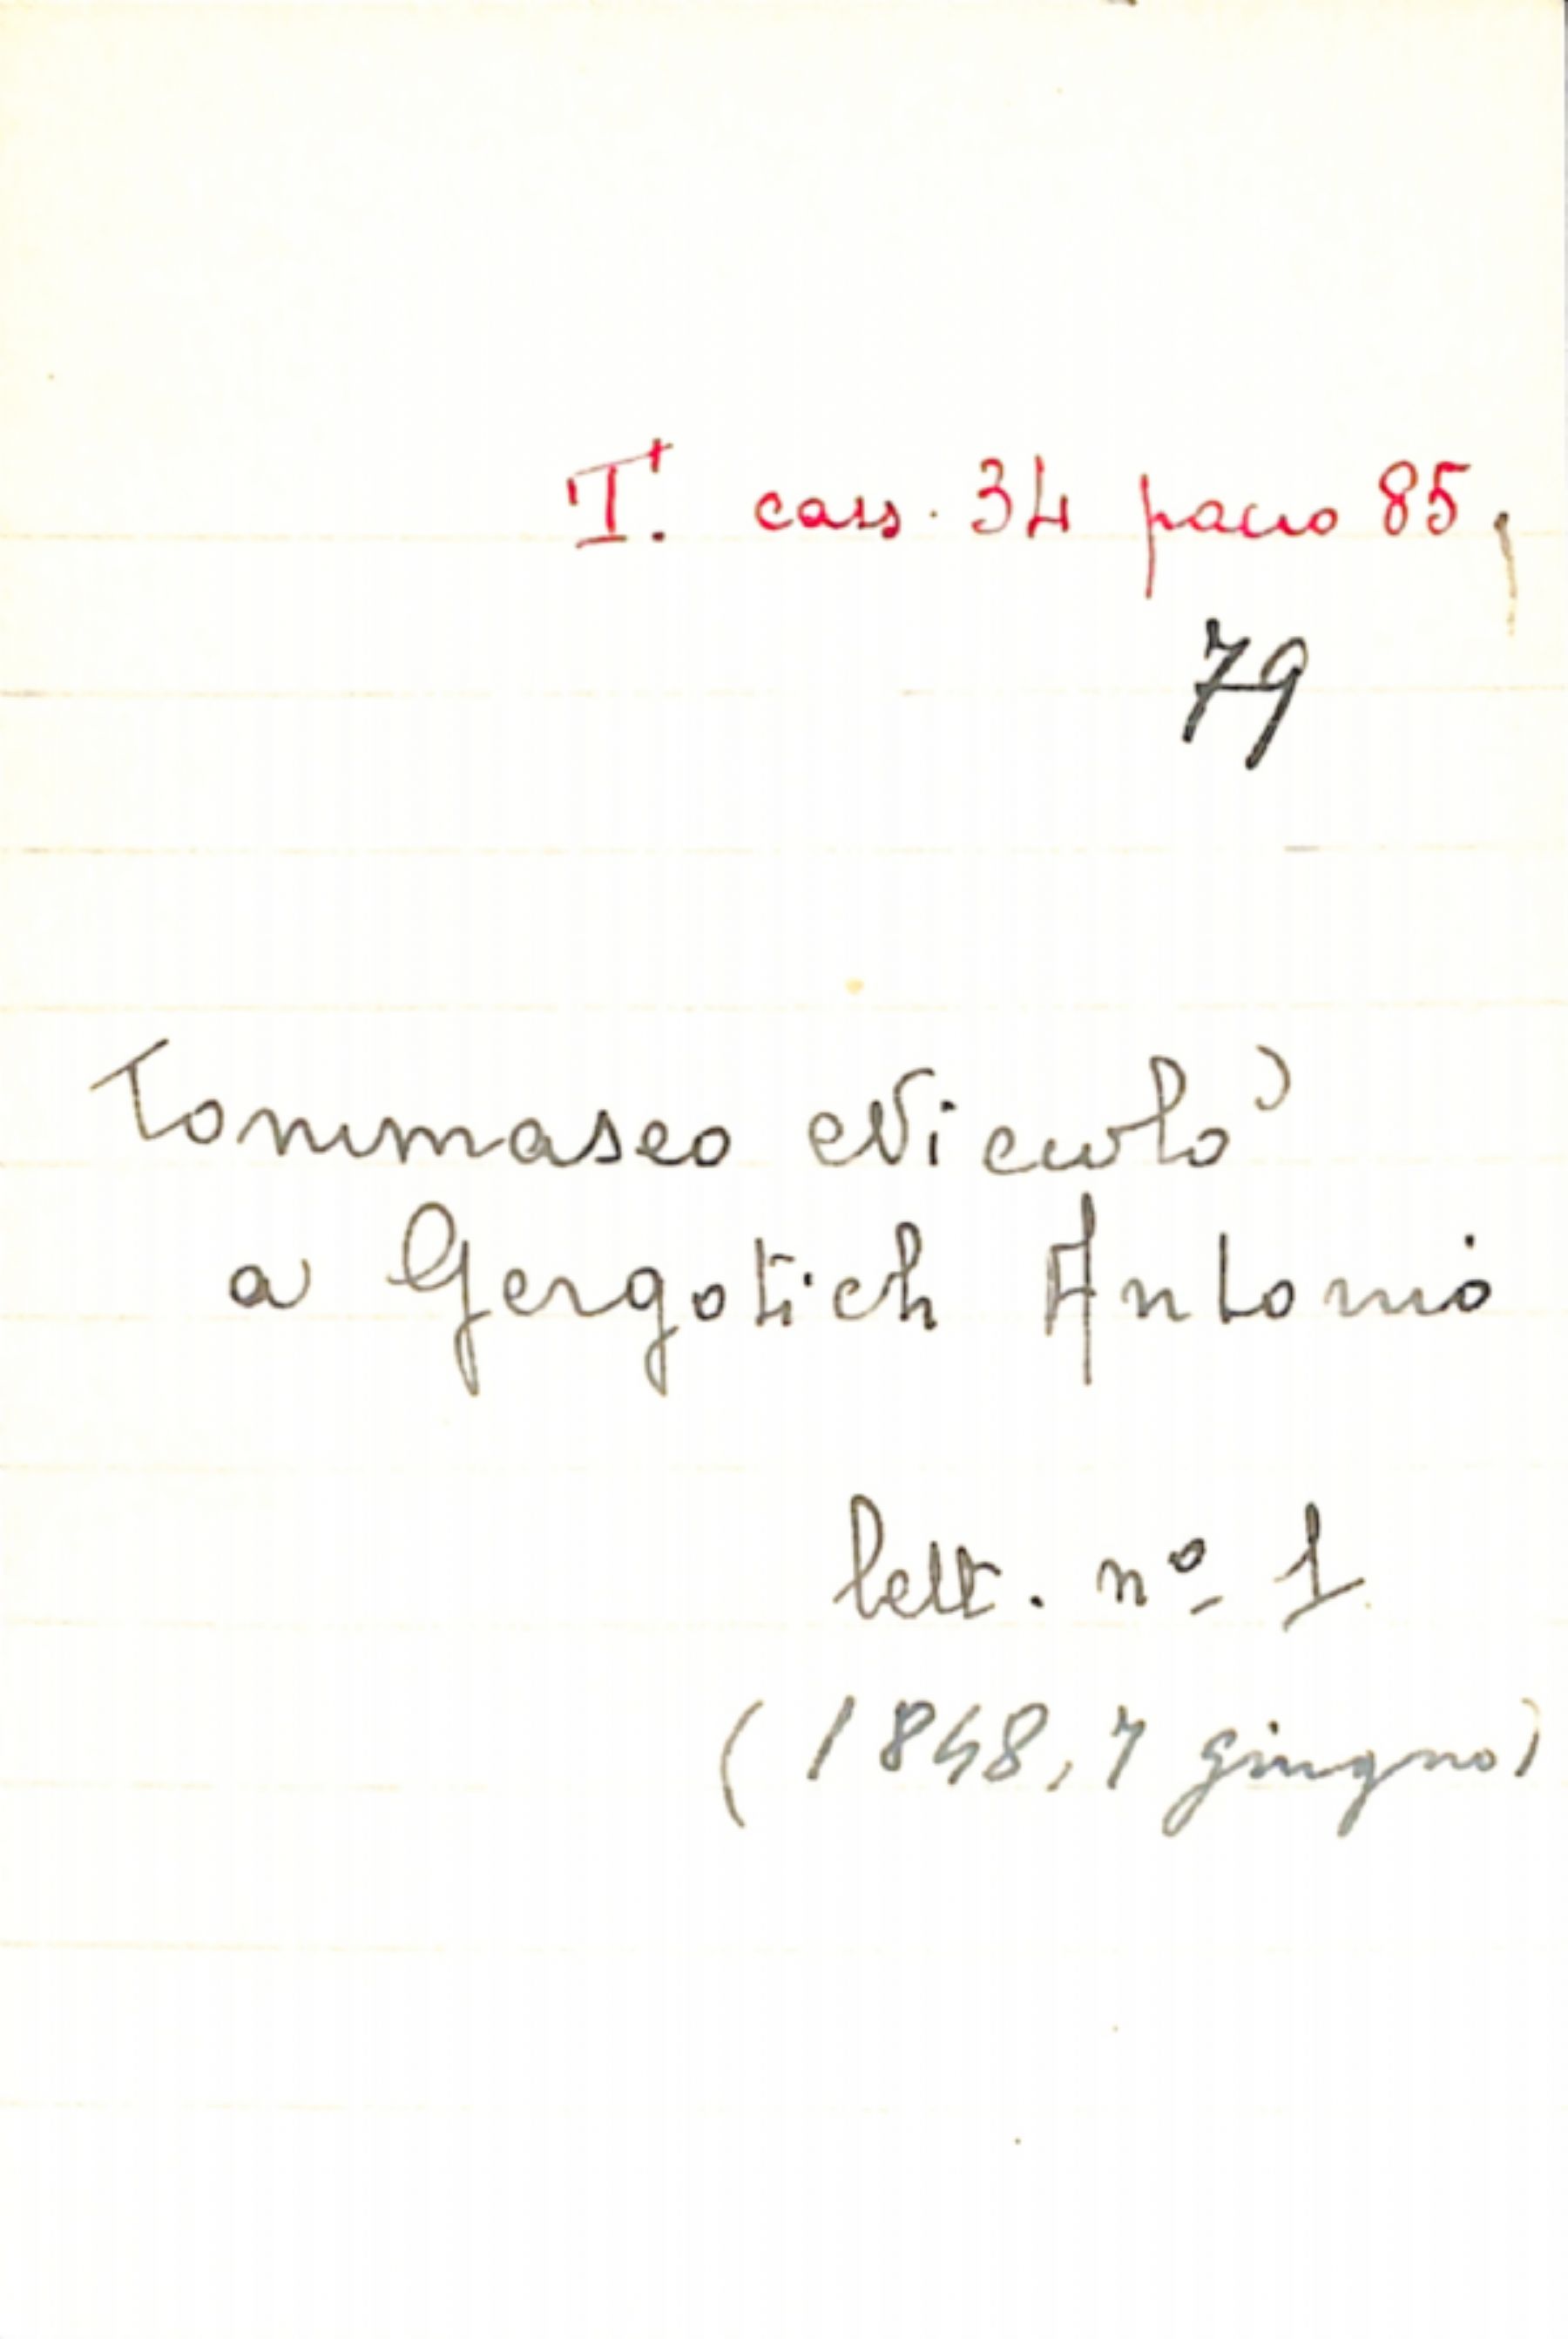 T. cass. 34 pacco 85,
79
Tommaseo Niccolò
a Gergotich Antonio
lett. nº 1
(1848, 7 giugno)